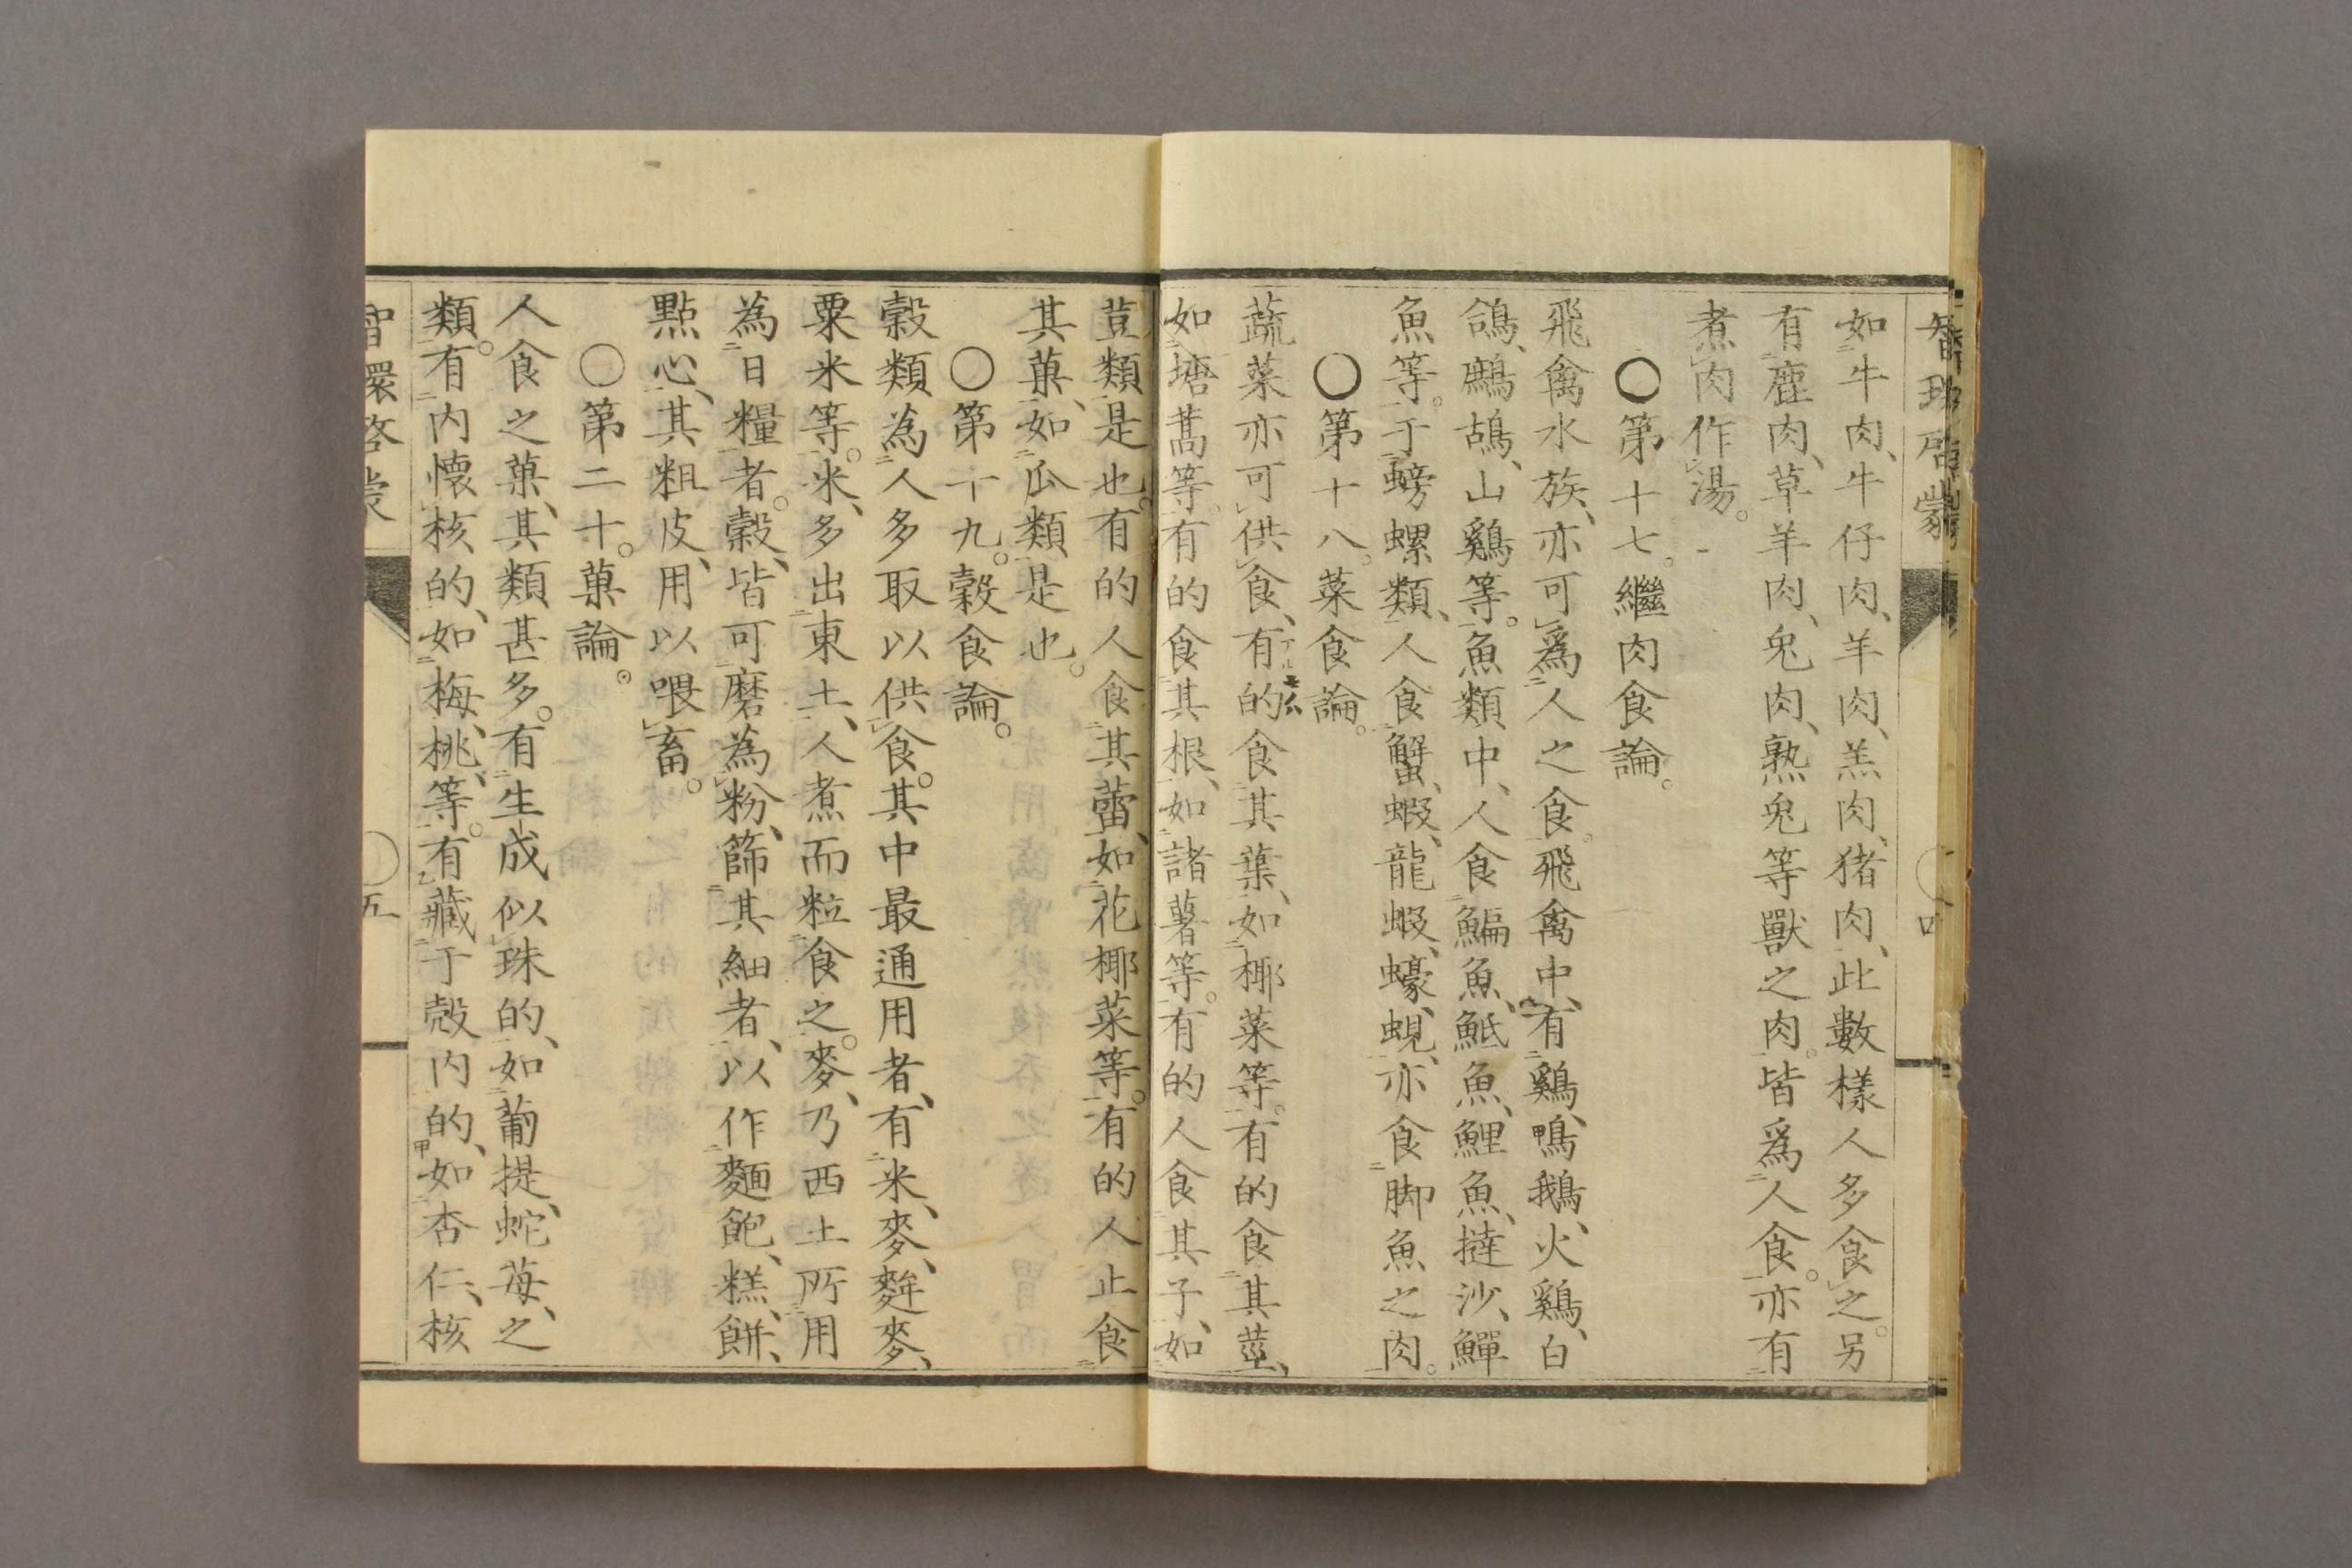 智環啓蒙
四
如牛肉、牛仔肉、羊肉、羔肉、猪肉、此數樣人多食之。另
有鹿肉、草羊肉、兔肉、熟兔等獸之肉。皆爲人食。亦有
煮肉作湯。
○第十七。繼肉食論。
飛禽水族、亦可爲人之食。飛禽中、有鷄、鴨、鵝、火鷄、白
鴿、鷓鴣、山鷄等。魚類中、人食鯿魚、魠魚、鯉魚、撻沙、鱓
魚等。于螃螺類、人食蟹、蝦、龍蝦、蠔、蜆、亦食脚魚之肉。
○第十八。菜食論。
蔬菜亦可供食、有的食其葉、如椰菜等。有的食其莖、
如塘蒿等。有的食其根、如諸薯等。有的人食其子、如
荳類是也。有的人食其蕾、如花椰菜等。有的人止食
其菓、如瓜類是也。
○第十九。穀食論。
穀類為人多取以供食。其中最通用者、有米、麥、麰麥、
粟米等。米、多出東土、人煮而粒食之。麥、乃西土所用
為日糧者。穀、皆可磨為粉、篩其細者、以作麵飽、糕、餅、
點心、其粗皮、用以喂畜。
○第二十。菓論。
人食之菓、其類甚多。有生成似珠的、如葡提、蛇苺、之
類。有内懷核的、如梅、桃、等。有藏于殼内的、如杏仁、核
智環啓蒙
五